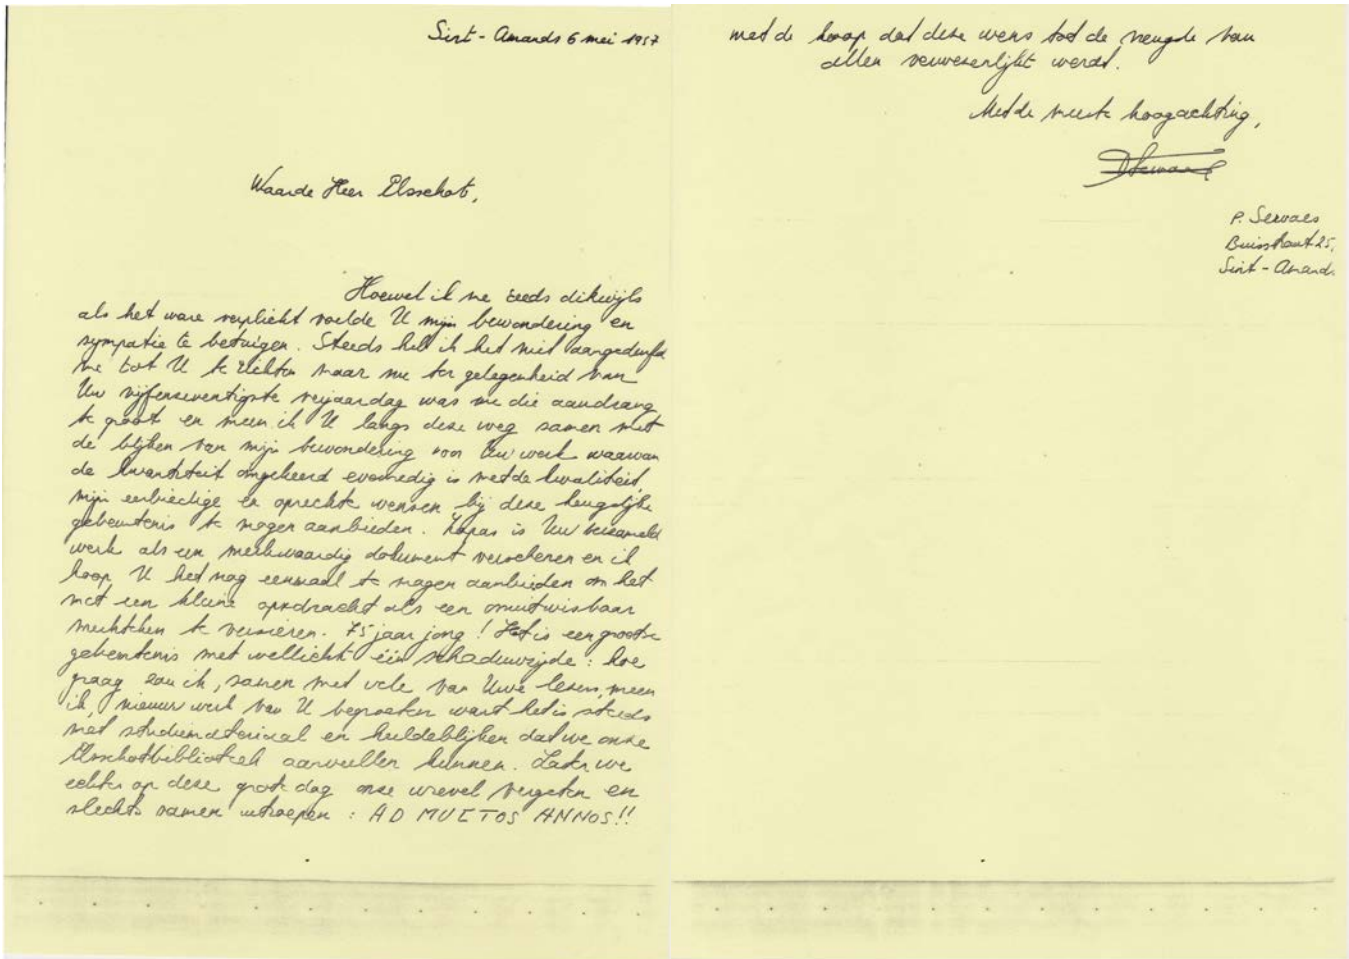 Sint-Amands 6 mei 1957
Waarde Heer Elsschot,
Hoewel ik me reeds dikwijls
als het ware verplicht voelde U mijn bewondering en
sympatie te betuigen. Steeds heb ik het niet aangedurfd
me tot U te richten maar nu ter gelegenheid van
Uw vijfenzeventigste verjaardag was me die aandrang
te groot en meen ik U langs deze weg samen met
de blijken van mijn bewondering voor Uw werk waarvan
de kwantiteit omgekeerd evenredig is met de kwaliteit,
mijn eerbiedige en oprechte wensen bij deze heugelijke
gebeurtenis te mogen aanbieden. Zopas is Uw verzameld
werk als een merkwaardig dokument verschenen en ik
hoop U het nog eenmaal te mogen aanbieden om het
met een kleine opdracht als een onuitwisbaar
merkteken te versieren. 75 jaar jong! Het is een grootse
gebeurtenis met wellicht één schaduwzijde: hoe
graag zou ik, samen met vele van Uwe lezers, meen
ik, nieuw werk van U begroeten want het is steeds
met studiemateriaal en huldeblijken dat we onze
Elsschotbibliotheek aanvullen kunnen. Laten we
echter op deze grote dag onze wrevel vergeten en
slechts samen uitroepen: AD MULTOS ANNOS!!
met de hoop dat deze wens tot de vreugde van
allen verwezenlijkt wordt.
Met de meeste hoogachting,
P. Servaes
Buisstraat 25,
Sint-Amands